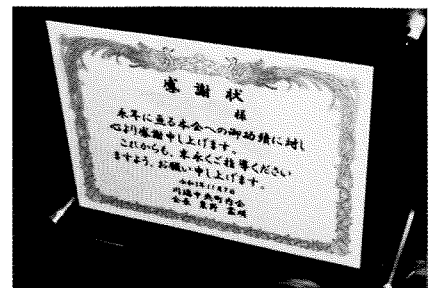 感謝状
様
永年に亘る本会への御功績に対し
心より感謝申し上げます。
これからも、幸永くご指導ください
ますよう、お願い申し上げます。
町内会
会長